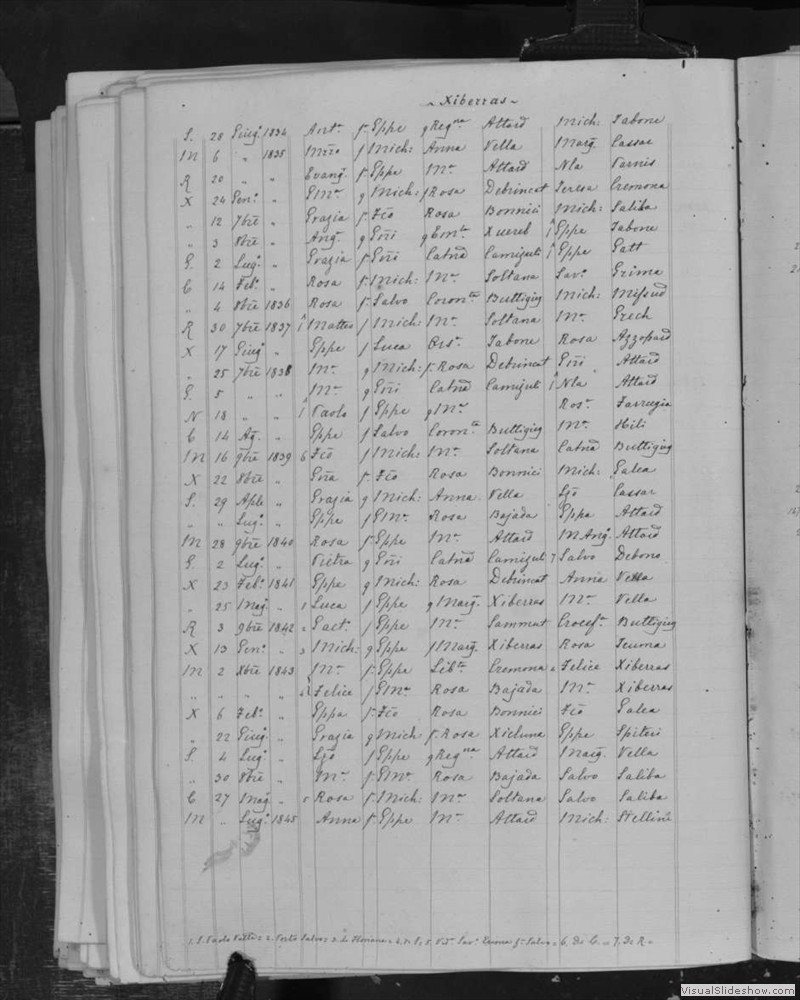 ~ Xiberras ~
S. 28 Giugº 1834 Antª f. Eppe q Regna Attard Mich: Tabone
M 6 " 1835 f Mich: Anna Vella Marg. Cassar
R 20 " " Evang. f. Eppe Mª Attard Nla Varnis
X 24 Genº " q Mich: f Rosa Debrincat Teresa Cremona
" 12 7bre " Grazia f. Fco Rosa Bonnici Mich: Saliba
" 3 8bre " Ang. q Gni Xuereb Eppa Tabone
G. 2 Lugº " Grazia f. Gni Catnª Camizuli Eppe Gatt
C 14 Febº " Rosa f. Mich: Mª Soltana Savº Grima
" 4 8bre 1836 Rosa f. Salvo Coronta Buttigieg Mich: Mifsud
R 30 7bre 1837 Matteo f Mich: Mª Soltana Mª Grech
X 17 Giugº " Eppe f Luca Tabone Rosa Azzopard
" 25 7bre 1838 Mª q Mich: f. Rosa Debrincat Gni Attard
G. 5 " " Mª q Gni Catnª Camizuli Nla Attard
N 18 " " Paolo f Eppe q Mª Rosª Farrugia
C 14 Ag. " Eppe f Salvo Coronta Buttigieg Mª Hili
M 16 9bre 1839 6 Fco f Mich: Mª Soltana Catnª Buttigieg
X 22 8bre " Gna f. Fco Rosa Bonnici Mich: Galea
S. 29 Aple " Grazia q Mich: Anna Vella Cassar
" " Lugº " Eppe Rosa Bajada Eppa Attard
M 28 9bre 1840 Rosa f. Eppe Mª Attard M Angº Attard
G. 2 Lugº " Pietra q Gni Catnª Camizuli 7 Salvo Debono
X 23 Febº 1841 Eppe q Mich: Rosa Debrincat Anna Vella
" 25 Magº " 1 Luca f Eppe q Marg. Xiberras Mª Vella
R 3 9bre 1842 f Eppe Mª Sammut Crocefª Buttigieg
X 13 Genº " 3 Mich: q Eppe f Marg. Xiberras Rosa Teuma
M 2 Xbre 1843 Mª f. Eppe Libta Cremona Felice Xiberras
" " " " Felice Rosa Bajada Mª Xiberras
X 6 Febº " Eppa f. Fco Rosa Bonnici Fco Galea
" 22 Giugº " Grazia q Mich f. Rosa Xicluna Eppe Spiteri
S. 4 Lugº " f Eppe q Regna Attard Marg. Vella
" 30 8bre " Mª Rosa Bajada Salvo Saliba
C 27 Magº " 5 Rosa f. Mich: Mª Soltana Salvo Saliba
M " Lugº 1845 Anna f. Eppe Mª Attard Mich: Stellini
VisualSlideshow.com